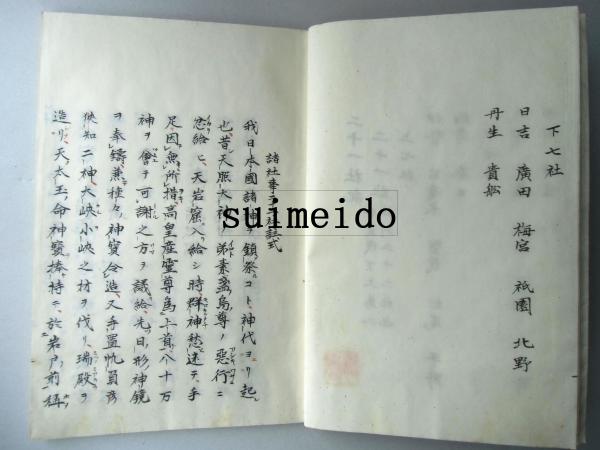 下七社
日吉 廣田 梅宮 祇園 北野
丹生 貴船
諸社
我日本國諸神ヲ鎮祭コト神代ヨリ起
也昔天照大神弟素盞烏尊ノ惡行ニ
忿給ヒ天岩窟入給シ時群神愁迷テ手
足因無所措高皇産靈尊為上首八十万
神ヲ會テ可謝之方ヲ議給先日形神鏡
ヲ奉鑄兼種々神寳令造又手置帆負彦
狹知二神大峡小峡之材ヲ伐リ瑞殿ヲ
造リ天太玉命神寳捧持ニ於岩戸前
suimeido